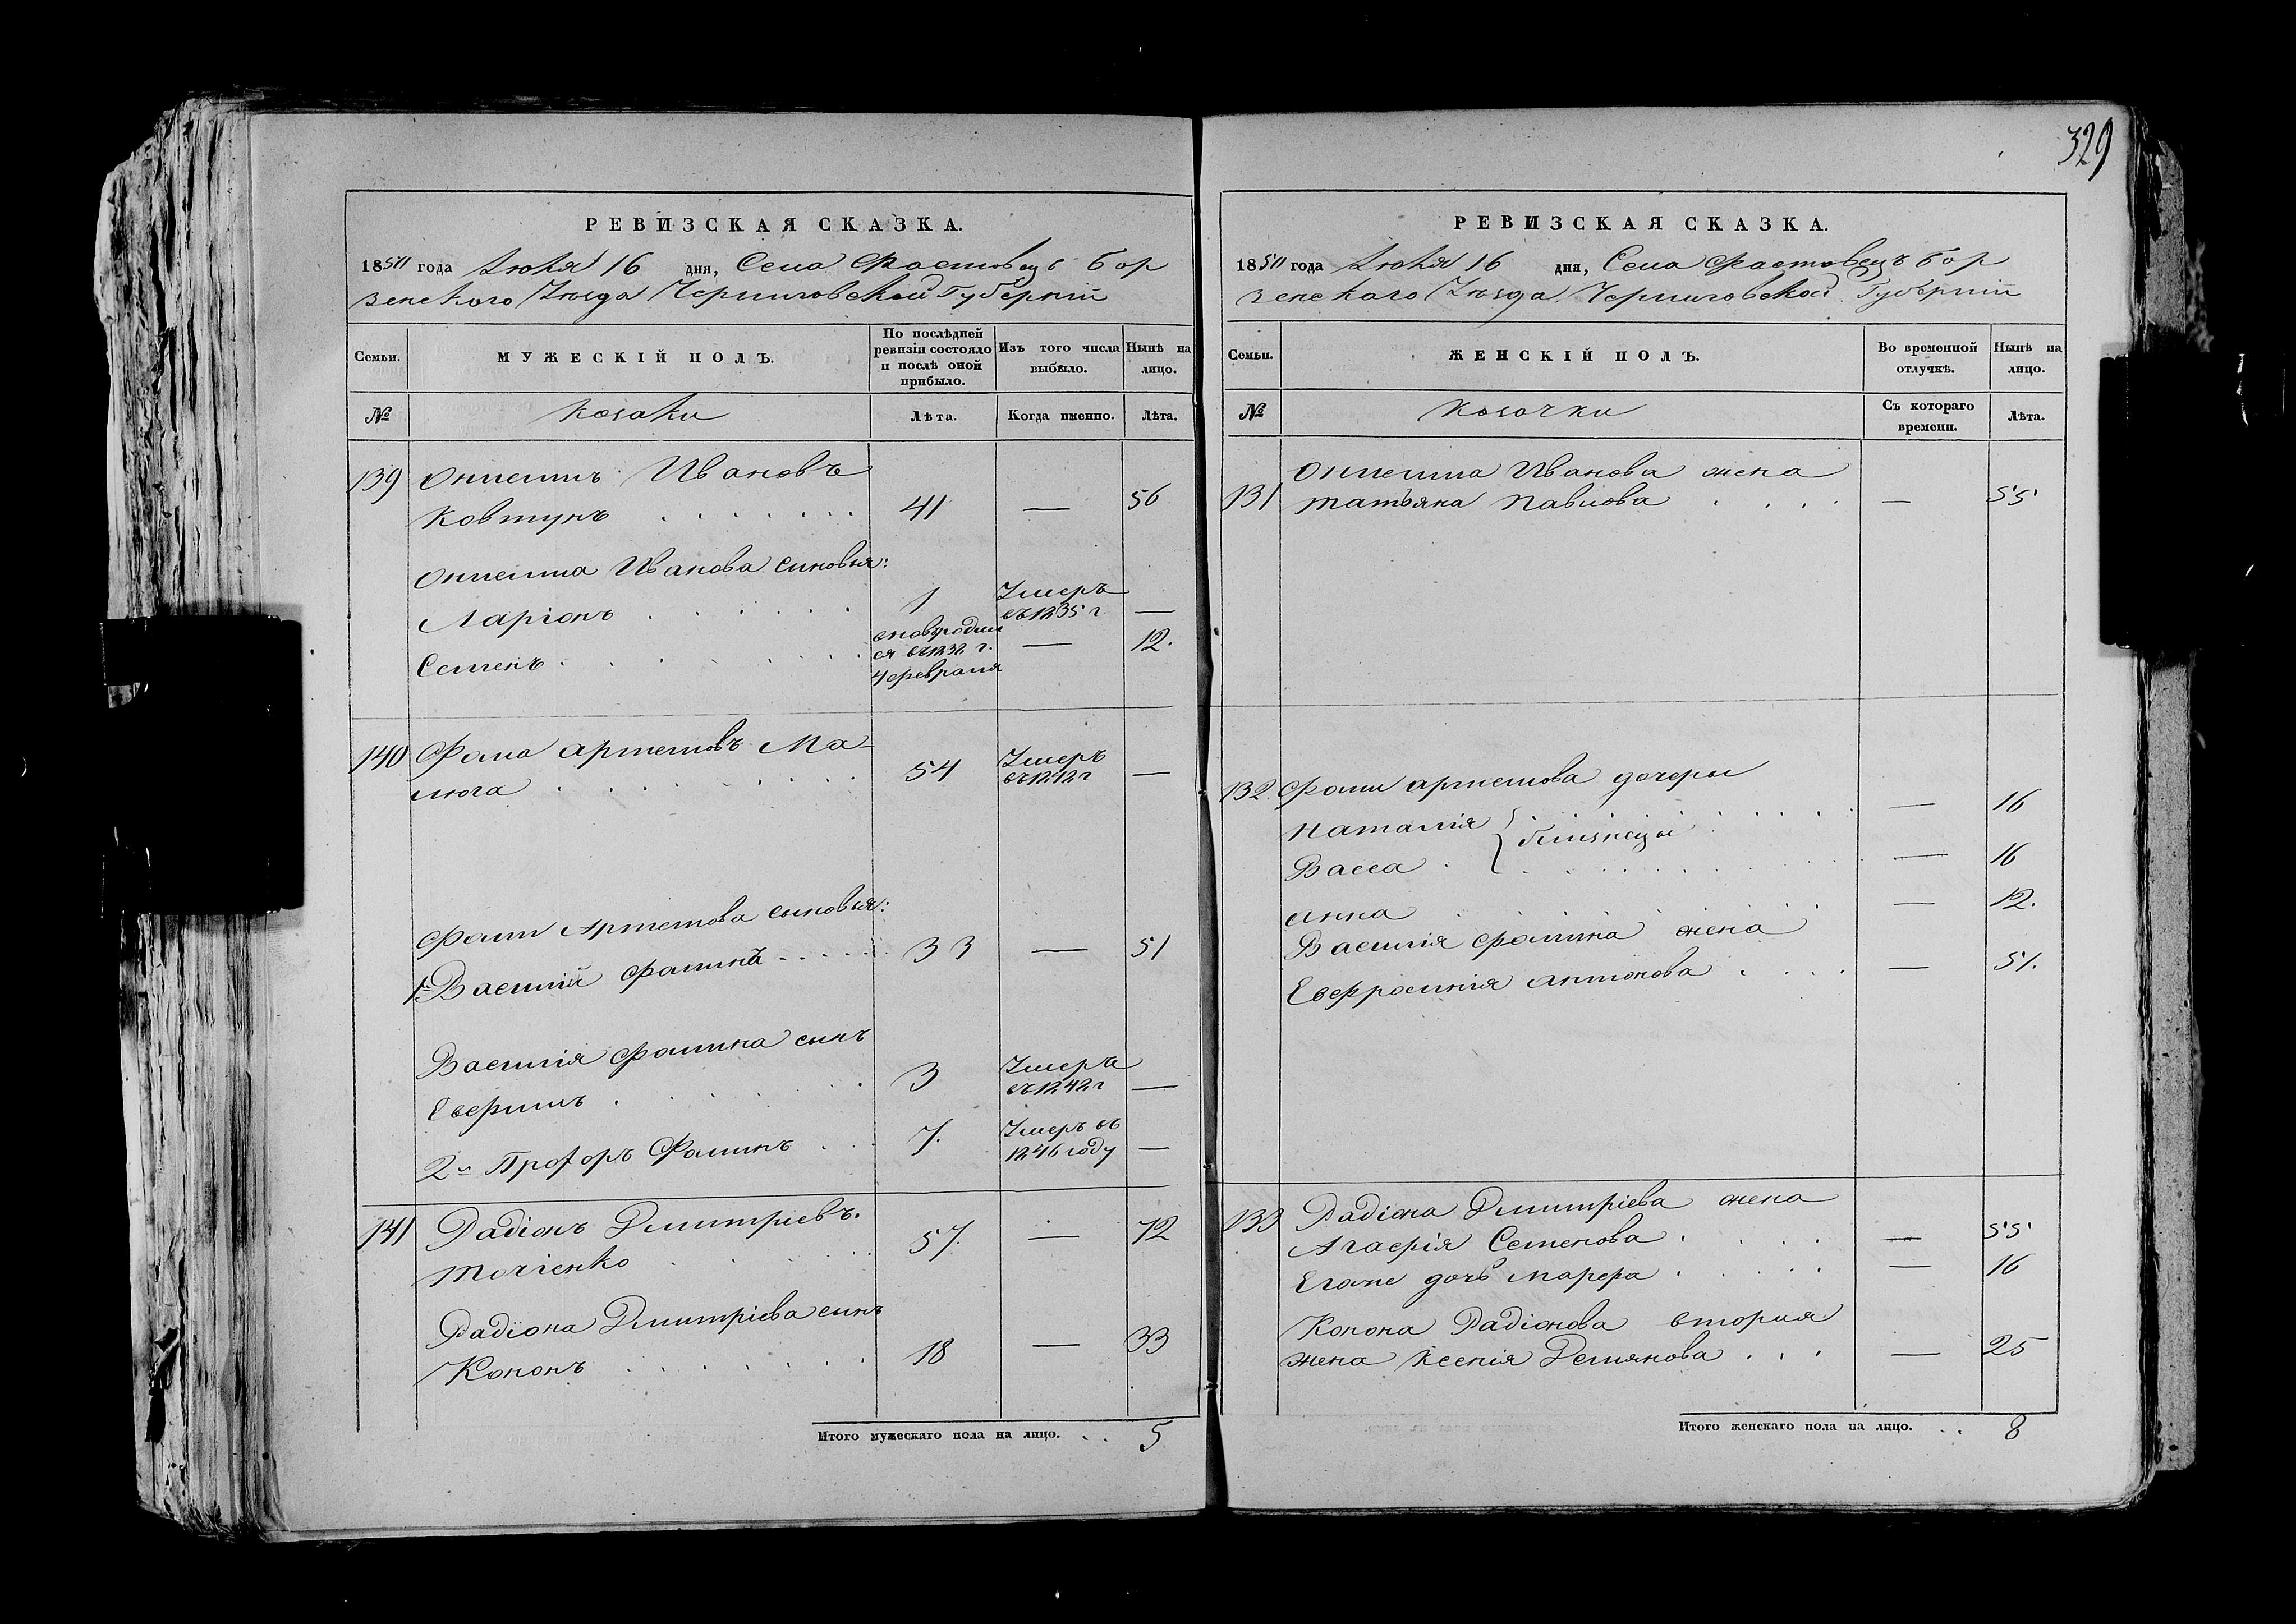 329
РЕВИЗСКАЯ СКАЗКА.
1850 года Июня 16 дня, Села Фастовецъ Бор
зенского Уѣзда Черниговской Губерніи
Семьи.
МУЖЕСКІЙ ПОЛЪ.
По послѣдней ревизіи состояло и послѣ оной прибыло.
Изъ того числа выбыло.
Нынѣ на лицо.
№
козаки
Лѣта.
Когда именно.
Лѣта.
139 Онисимъ Ивановъ
Ковтунъ 41 — 56
Онисима Иванова сыновья:
Ларіонъ 1 Умеръ въ 1835 г. —
Семенъ вновь родил ся въ 1838 г. 4 февраля — 12.
140 Фома Артемовъ Ма-
люга 54 Умеръ въ 1842 г —
Фомы Артемова сыновья:
1й Василій Фоминъ 33 — 51
Василія Фомина сынъ
Евфимъ 3 Умеръ въ 1842 г —
2й Прохоръ Фоминъ 7. Умеръ въ 1846 году —
141 Радіонъ Дмитріевъ.
57. — 72
Радіона Дмитріева сынъ
Кононъ 18 — 33
Итого мужескаго пола на лицо. 5
РЕВИЗСКАЯ СКАЗКА.
1850 года Июня 16 дня, Села Фастовецъ Бор
зенскаго Уѣзда Черниговской Губерніи
Семьи.
ЖЕНСКІЙ ПОЛЪ.
Во временной отлучкѣ.
Нынѣ на лицо.
№
козачки
Съ котораго времени.
Лѣта.
131 Онисима Иванова жена
Татьяна Павлова — 55
132 Фомы Артемова дочеры
Наталія } близнецы — 16
Васса — 16
Анна — 12.
Василія Фомина жена
Евфросинія Антонова — 51.
133 Радіона Дмитріева жена
Агафія Семенова — 55
Егоже дочь Марфа — 16
Конона Радіонова вторая
жена Ксенія Демянова — 25
Итого женскаго пола на лицо. 8